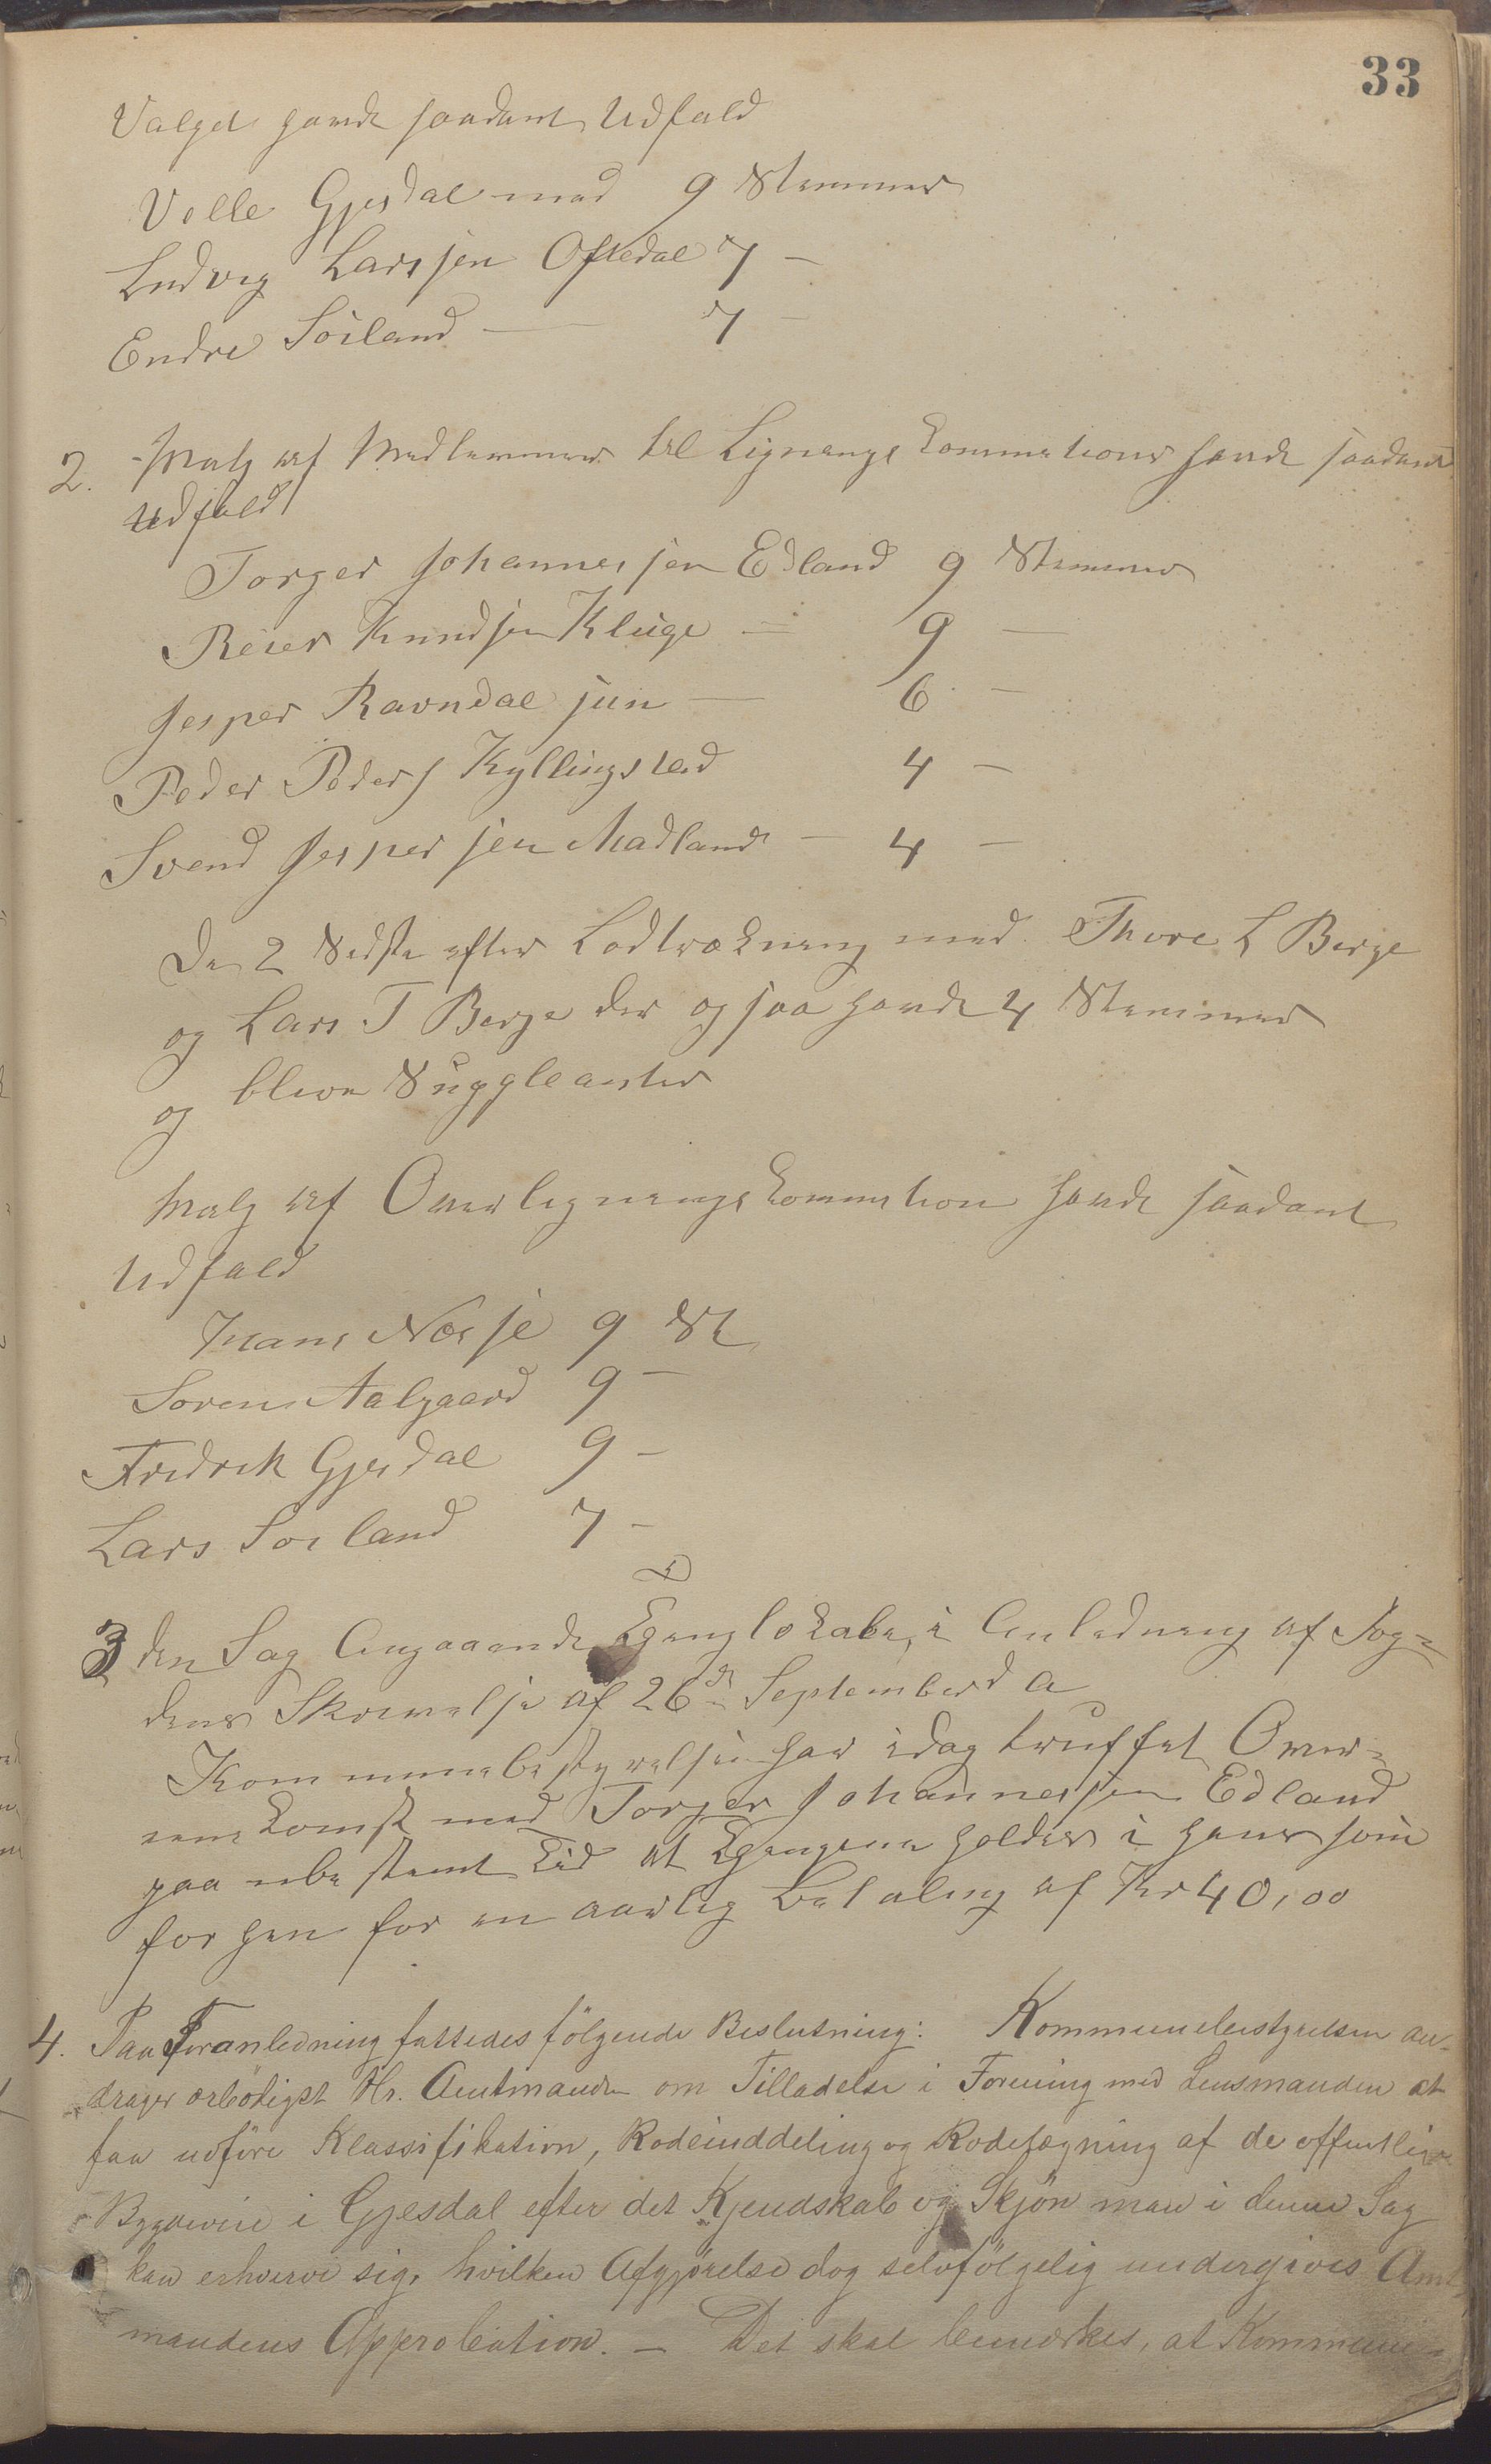 33
Valget havde saadant Udfald
Velle Gjesdal med 9 Stemmer
Ludvig Larssen Oftedal 7 —
Endre Soiland — 7 —
2. Valg af Medlemmer til Ligningskommitionen havde saadant
Udfald
Torger Johannessen Edland 9 Stemmer
Reier Knudsen Kluge — 9 —
Jesper Ravndal jun — 6 —
Peder Peders Kyllingstad 4 —
Svend Jespersen Madland — 4 —
De 2 Sidste efter Lodtrækning med Thore L Berge
og Lars T Berge der ogsaa havde 4 Stemmer
og blive Suppleanter
Valg af Overligningskommition havde saadant
Udfald
Hans Næsse 9 St
Soren Aalgaard 9 —
Fredrik Gjesdal 9 —
Lars Soiland 7 —
3 den Sag Angaaende Thinglokale, i Anledning af Fog=
dens Skrivelse af 26de September d A
Kommunebestyrelsen har idag truffet Over=
enskomst med Torger Johannessen Edland
paa ubestemt Tid at Thingene holdes i hans
for ham for en aarlig Betaling af Kr 40,00
4. Paa Foranledning fattedes følgende Beslutning: Kommunebestyrelsen an-
drager ærbødigst Hr. Amtmanden om Tilladelse i Forening med Lensmanden at
faa udføre Klassifikation, Rodeinddeling og Rodelægning af de offentlige
Bygdeveie i Gjesdal efter det Kjendskab og Skjøn man i denne Sag
kan erhverve sig, hvilken Afgjørelse dog selvfølgelig undergives Amt-
mandens Approbation. — Det skal bemærkes, at Kommune-